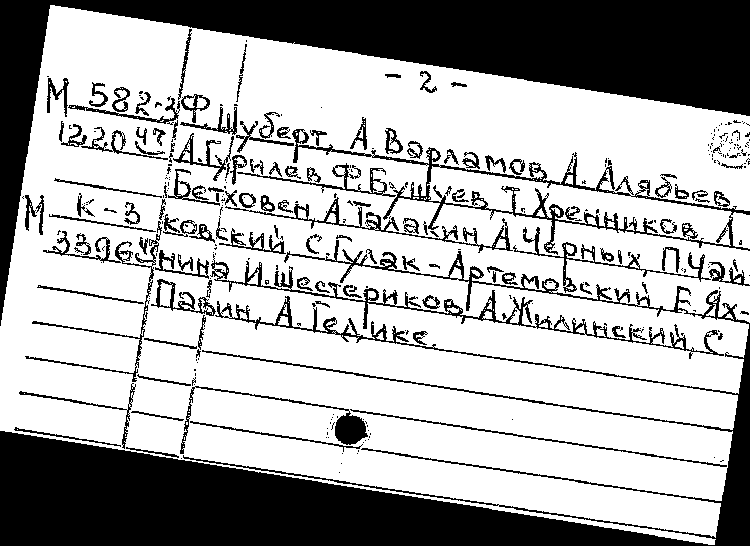 - 2 -
М 582-3 Ф. Шуберт, А. Варламов, А. Алябьев,
1220 А. Гурилев, Ф. Бушуев, Т. Хренников, Л.
Бетховен, А. Талакин, А. Черных, П. Чай
М К-3 ковский, С. Гулак - Артемовский, Е. Ях-
3396 нина, И. Шестериков, А. Жилинский, С.
Павин, А. Гедике.